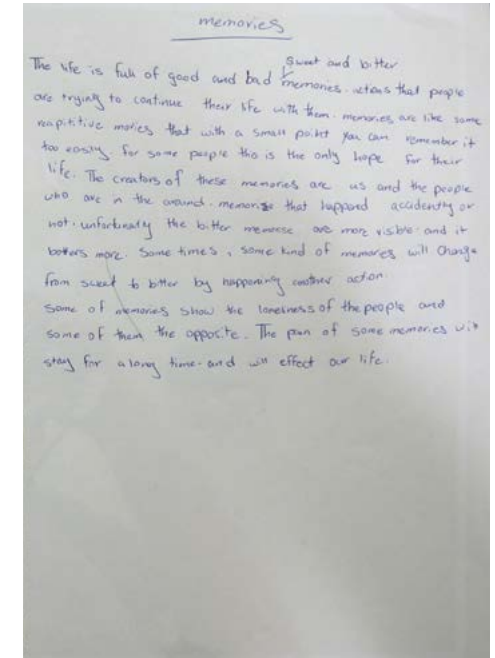 memories
sweet and bitter
The life is full of good and bad memories. that people
are trying to continue their life with them. memories are like some
reapititive movies that with a small point you can remember it
too easily. for some people this is the only hope for their
life. The creators of these memories are us and the people
who are in the around. that happened accidently or
not. unfortunatly the bitter are more visible and it
bothers more. Some times, some kind of memories will change
from sweet to bitter by happening another action.
Some of memories show the loneliness of the people and
some of them the opposite. The of some memories will
stay for a long time. and will effect our life.